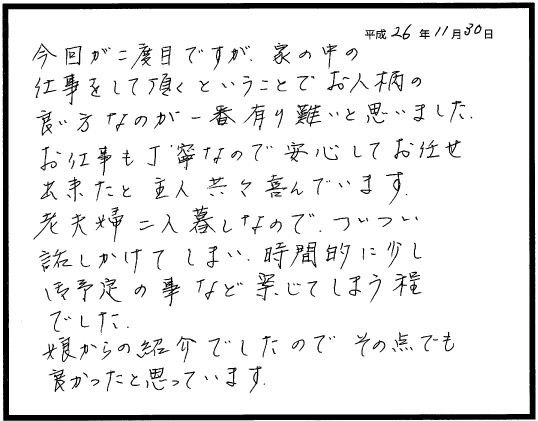 平成26年11月30日
今回が二度目ですが、家の中の
仕事をして頂くということでお人柄の
良い方なのが一番有り難いと思いました。
お仕事も丁寧なので安心してお任せ
出来たと主人共々喜んでいます。
老夫婦二人暮しなので、ついつい
話しかけてしまい、時間的に少し
御予定の事など案じてしまう程
でした。
娘からの紹介でしたのでその点でも
良かったと思っています。